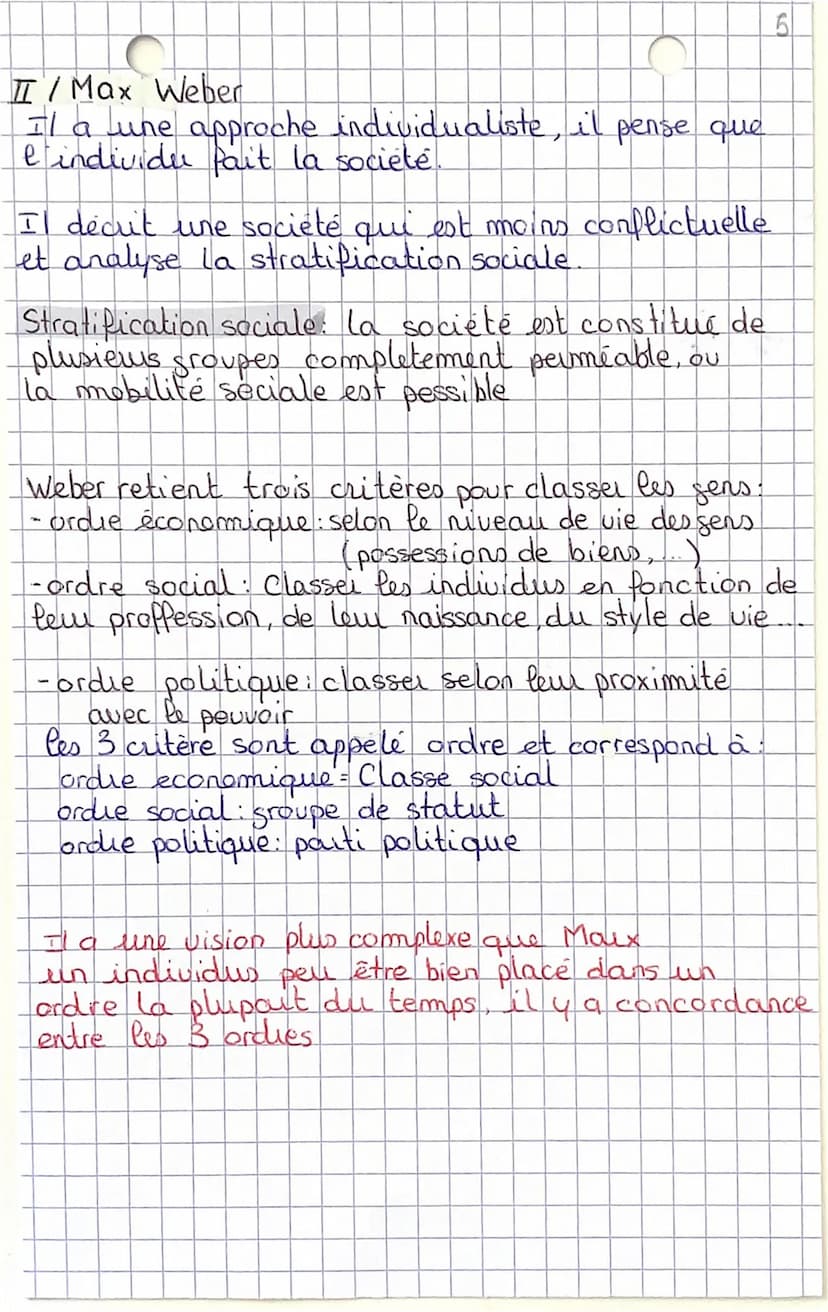 5
II / Max Weber
Il a une approche individualiste, il pense que
l'individu fait la société.
Il décrit une société qui est moins conflictuelle
et analyse la stratification sociale.
Stratification sociale: la société est constitué de
plusieurs groupes completement perméable, ou
la mobilité sociale est possible
Weber retient trois critères pour classer les gens:
- ordre économique: selon le niveau de vie des gens
(possessions de biens, ...)
- ordre social: Classer les individus en fonction de
leur proffession, de leur naissance, du style de vie ...
- ordre politique: classer selon leur proximité
avec le pouvoir
les 3 critère sont appelé ordre et correspond à:
ordre economique = Classe social
ordre social: groupe de statut
ordre politique: parti politique
Il a une vision plus complexe que Marx
un individus peu être bien placé dans un
ordre la plupart du temps, il y a concordance
entre les 3 ordres